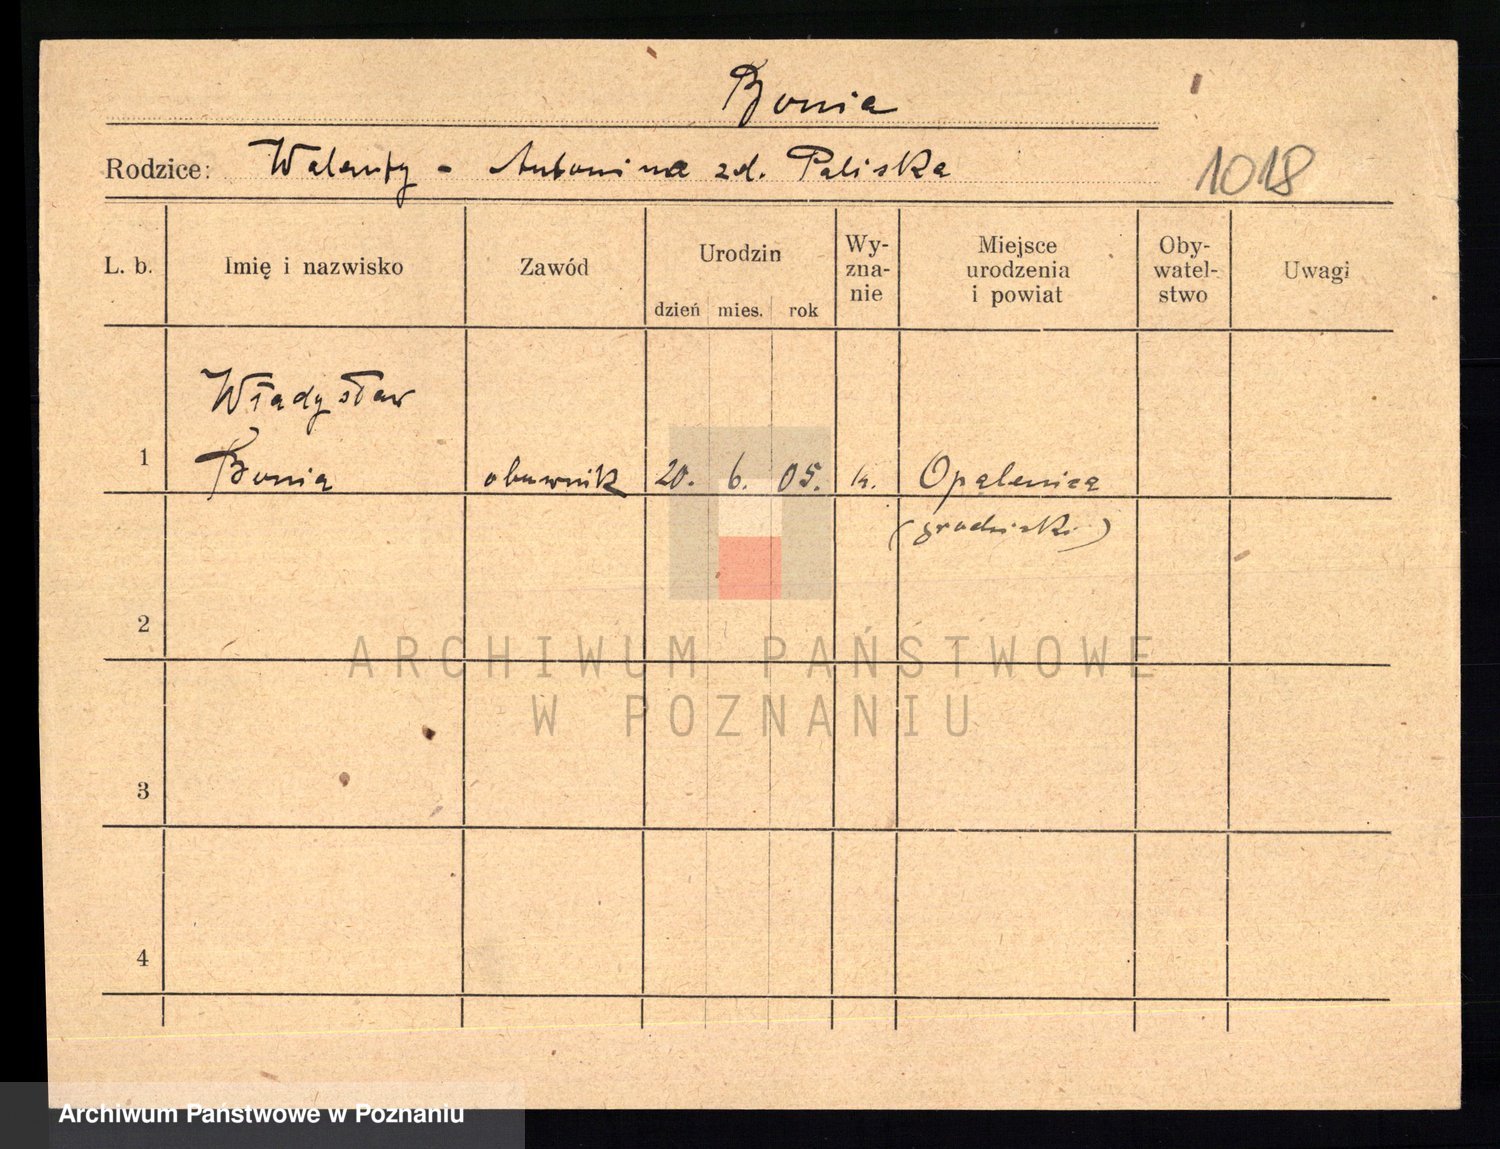 Bonia
Rodzice: Walenty - Antonina zd. Paliska
1018
L. b. Imię i nazwisko Zawód Urodzin Wy-zna-nie Miejsce urodzenia i powiat Oby-watel-stwo Uwagi
dzień mies. rok
Władysław
1 Bonia obuwnik 20. 6. 05. k. Opalenica
(grodziski)
2
ARCHIWUM PAŃSTWOWE
W POZNANIU
3
4
Archiwum Państwowe w Poznaniu